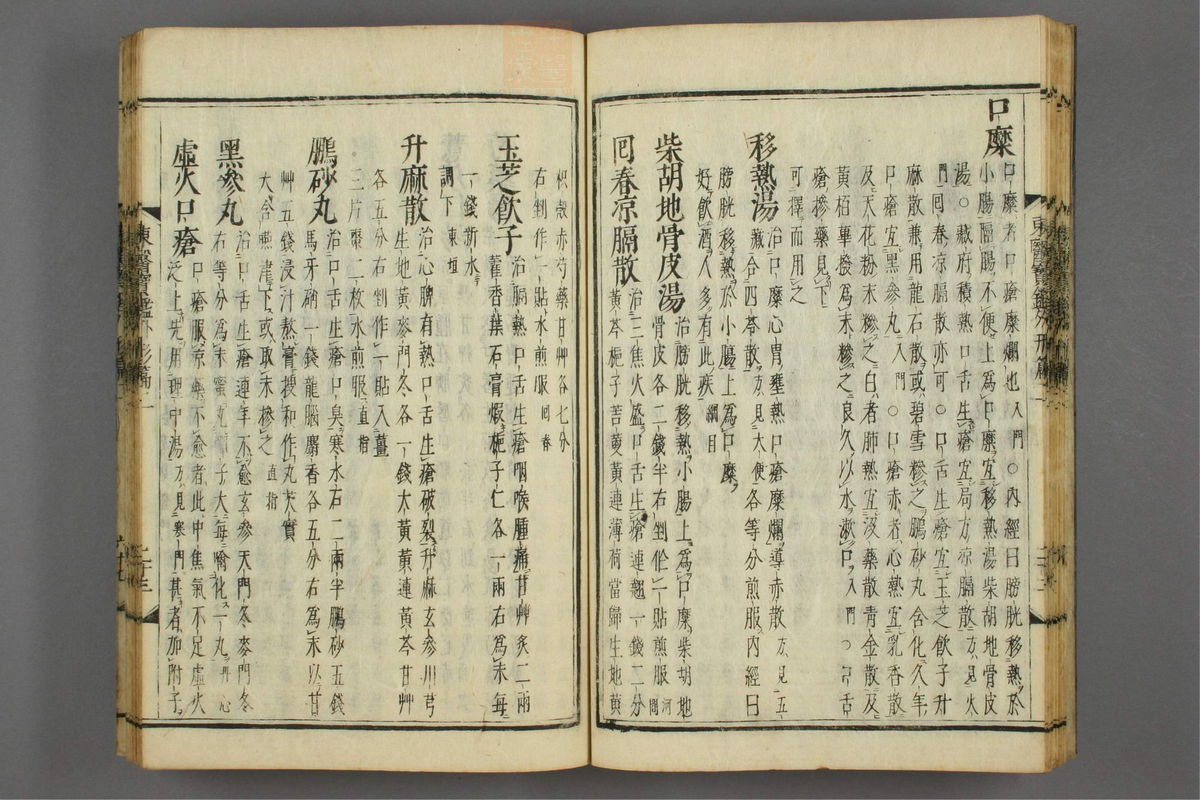 口糜
口糜者口瘡糜爛也入門○內經曰膀胱移熱於
小腸膈腸不便上爲口糜宜移熱湯柴胡地骨皮
湯○藏府積熱口舌生瘡宜局方凉膈散方見火
門回春凉膈散亦可○口舌生瘡宜玉芝飮子升
麻散兼用龍石散或碧雪糝之鵬砂丸含化久年
口瘡宜黑參丸入門○口瘡赤者心熱宜乳香散
及天花粉末糝之白者肺熱宜汲藥散青金散及
黃栢蓽撥爲末糝之良久以水漱口入門○口舌
瘡糝藥見下
可擇而用之
移熱湯
治口糜心胃壅熱口瘡糜爛導赤散方見五
藏合四苓散方見大便各等分煎服內經曰
膀胱移熱於小腸上爲口糜
好飮酒人多有此疾綱目
柴胡地骨皮湯
治膀胱移熱小腸上爲口糜柴胡地
骨皮各二錢半右剉作一貼煎服河間
回春凉膈散
治三焦火盛口舌生瘡連翹一錢二分
黃芩梔子苦莄黃連薄荷當歸生地黃
枳殼赤芍藥甘艸各七分
右剉作一貼水煎服回春
玉芝飮子
治膈熱口舌生瘡咽喉腫痛甘艸炙二兩
藿香葉石膏煆梔子仁各一兩右爲末每
一錢新水
調下東垣
升麻散
治心脾有熱口舌生瘡破裂升麻玄參川芎
生地黃麥門冬各一錢大黃黃連黃芩甘艸
各五分右剉作一貼入薑
三片棗二枚水煎服直指
鵬砂丸
治口舌生瘡口臭寒水石二兩半鵬砂五錢
馬牙硝一錢龍腦麝香各五分右爲末以甘
艸五錢浸汁熬膏搜和作丸芡實
大含嚥津下或取末糝之直指
黑參丸
治口舌生瘡連年不愈玄參天門冬麥門冬
右等分爲末蜜丸彈子大每噙化一丸丹心
虛火口瘡
口瘡服凉藥不愈者此中焦氣不足虛火
泛上先用理中湯方見寒門甚者加附子
東醫寶鑑外形篇二
二十三
東醫寶鑑外形篇二
二十三